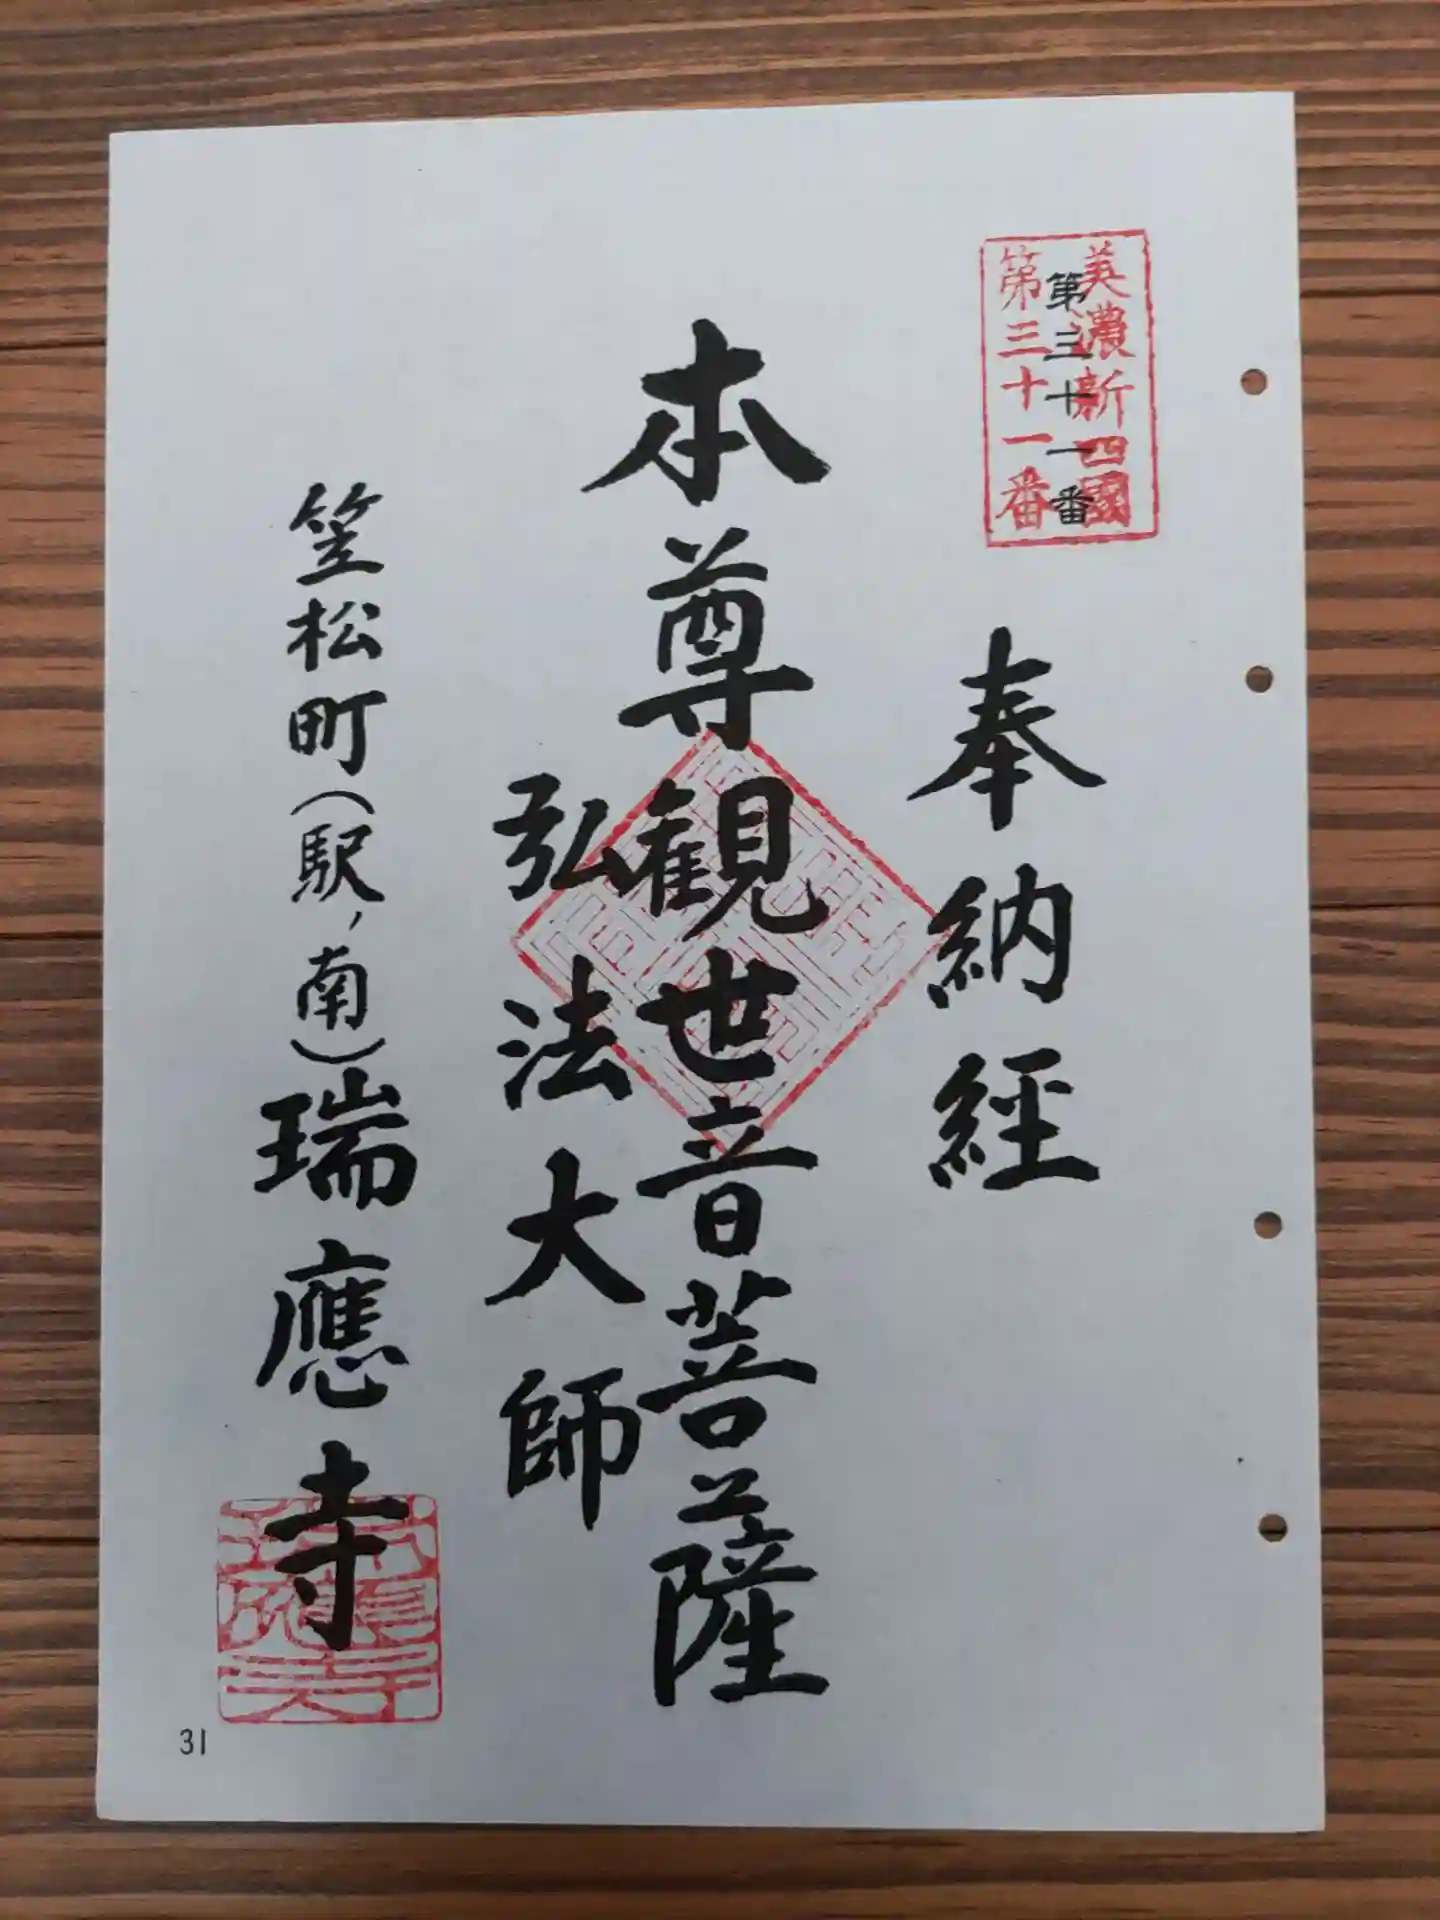 美濃新四國
第三十一番
第三十一番
奉納経
本尊観世音菩薩
弘法大師
笠松町(駅、南)瑞應寺
瑞應寺
31